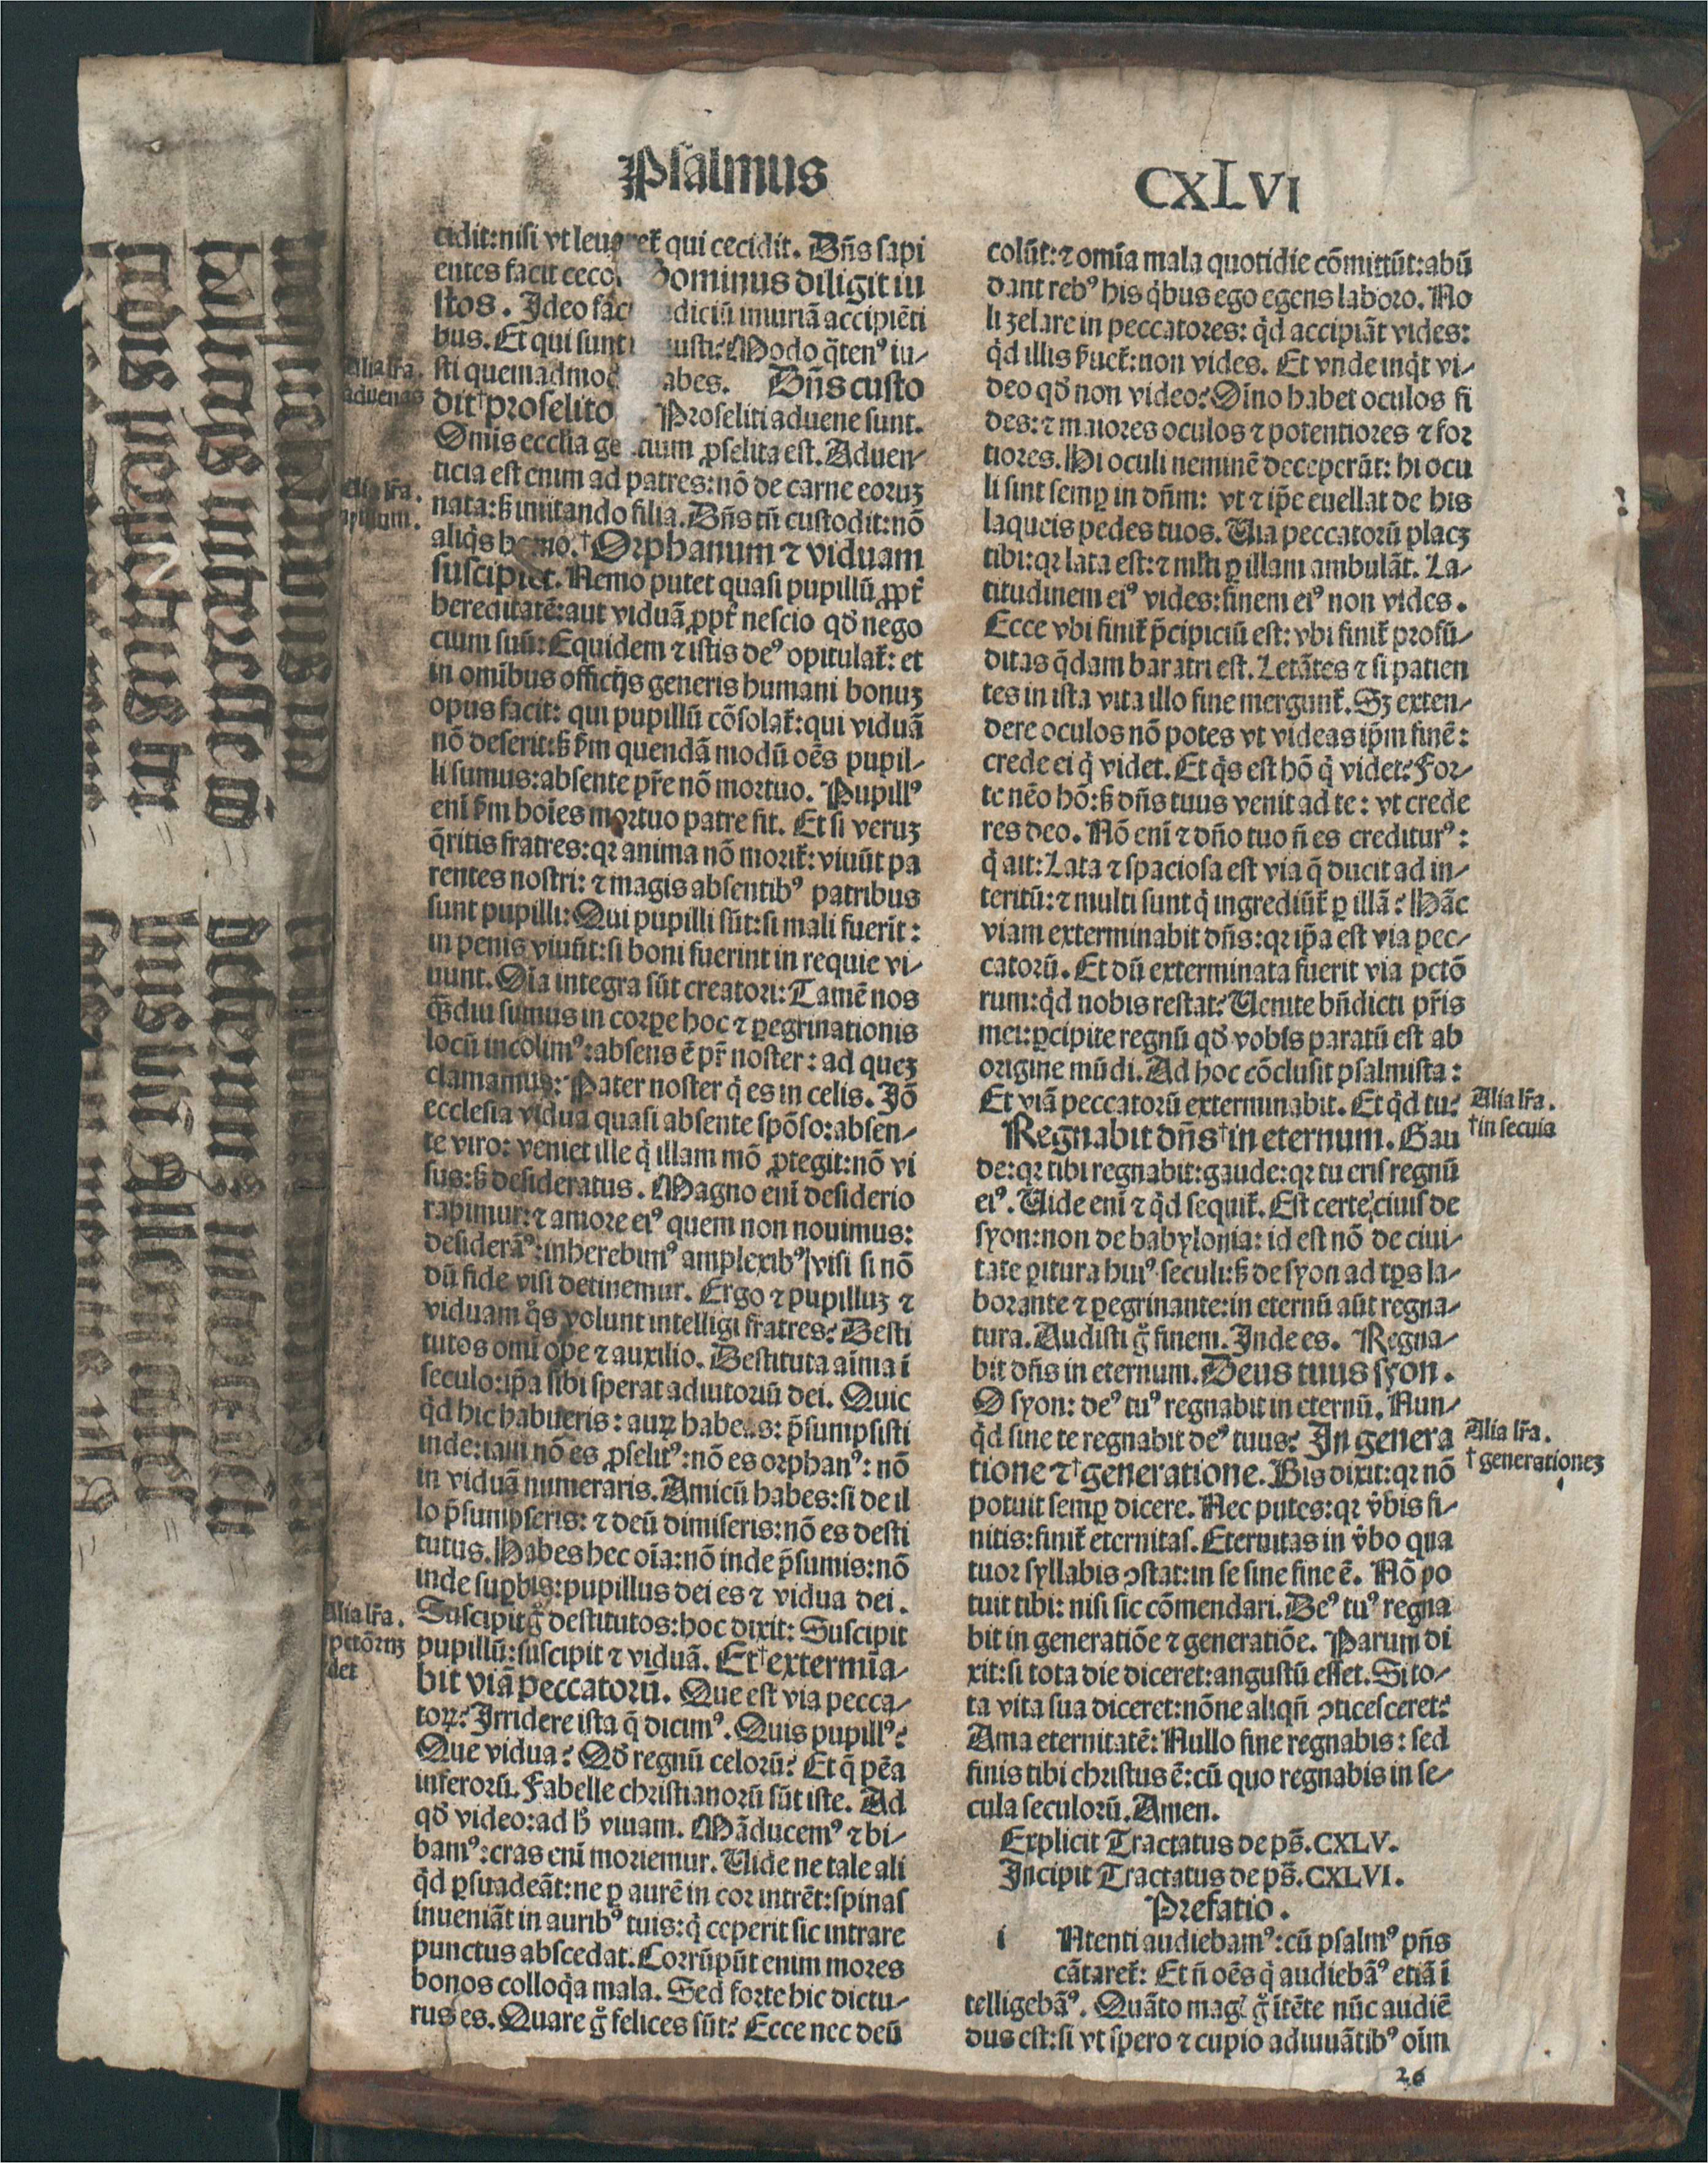 Psalmus
CXLVI
cidit:nisi vt leuaret᷑ qui cecidit. Dñs sapi
entes facit ceco Dominus diligit iu
stos. Ideo fac diciũ iniuriã accipiẽti
bus. Et qui sunt iusti? Modo q̃tenꝰ iu⸗
sti quemadmod abes. Dñs custo
dit†proselito Proseliti aduene sunt.
Alia lr̃a.
aduenas
Omis ecclĩa ge tium ꝓselita est. Aduen⸗
ticia est enim ad patres:nõ de carne eoruꝫ
nata:ß imitando filia. Dñs tñ custodit:nõ
aliq̃s homo.†Orphanum ⁊ viduam
Alia lr̃a.
pupillum.
suscipiet. Nemo putet quasi pupillũ ꝓpt᷑
hereditatẽ:aut viduã ꝓpt᷑ nescio qđ nego
cium suũ: Equidem ⁊ istis deꝰ opitulat᷑: et
in omibus officijs generis humani bonuꝫ
opus facit: qui pupillũ cõsolat᷑:qui viduã
nõ deserit:ß ẜm quendã modũ oẽs pupil⸗
li sumus:absente pr̃e nõ mortuo. Pupillꝰ
enĩ ẜm hoĩes mortuo patre fit. Et si veruꝫ
q̃ritis fratres:qꝛ anima nõ morit᷑: viuũt pa
rentes nostri: ⁊ magis absentibꝰ patribus
sunt pupilli: Qui pupilli sũt:si mali fuerĩt:
in penis viuũt:si boni fuerint in requie vi⸗
uunt. Oĩa integra sũt creatori: Tamẽ nos
q̃ꝫdiu sumus in corꝑe hoc ⁊ ꝑegrinationis
locũ incolimꝰ:absens ẽ pr̃ noster: ad queꝫ
clamamus: Pater noster q̇ es in celis. Iõ
ecclesia vidua quasi absente spõso:absen⸗
te viro: veniet ille q̇ illam mõ ꝓtegit:nõ vi
sus:ß desideratus. Magno enĩ desiderio
rapimur:⁊ amore eiꝰ quem non nouimus:
desiderãꝰ:inherebimꝰ amplexibꝰ visi si nõ
dũ fide visi detinemur. Ergo ⁊ pupilluꝫ ⁊
viduam q̃s volunt intelligi fratres? Desti
tutos omĩ ope ⁊ auxilio. Destituta aĩma ĩ
seculo:ip̃a sibi sperat adiutoriũ dei. Quic
q̇d hic habueris: auꝝ habens: p̃sumpsisti
inde:iam nõ es ꝓselitꝰ:nõ es orphanꝰ: nõ
in viduã numeraris. Amicũ habes:si de il
lo p̃sumpseris: ⁊ deũ dimiseris:nõ es desti
tutus. Habes hec oĩa:nõ inde p̃sumis:nõ
inde suꝑbis:pupillus dei es ⁊ vidua dei.
Suscipit g̊ destitutos:hoc dixit: Suscipit
pupillũ:suscipit ⁊ viduã. Et†extermĩa⸗
bit viã peccatorũ. Que est via pecca⸗
Alia lr̃a.
pctõꝝ
det
toꝝ? Irridere ista q̃ dicimꝰ. Quis pupillꝰ?
Que vidua? Qđ regnũ celorũ? Et q̃ pẽa
inferorũ. Fabelle christianorũ sũt iste. Ad
qđ video:ad h̾ viuam. Mãducemꝰ ⁊ bi⸗
bamꝰ:cras enĩ moriemur. Uide ne tale ali
q̇d ꝑsuadeãt:ne ꝑ aurẽ in cor intrẽt:spinas
inueniãt in auribꝰ tuis:q̇ ceperit sic intrare
punctus abscedat. Corrũpũt enim mores
bonos colloq̃a mala. Sed forte hic dictu⸗
rus es. Quare g̊ felices sũt? Ecce nec deũ
colũt:⁊ omĩa mala quotidie cõmittũt:abũ
dant rebꝰ his q̇bus ego egens laboro. No
li zelare in peccatores: q̇d accipiãt vides:
q̇d illis ẜuet᷑:non vides. Et vnde inq̇t vi⸗
deo qđ non video? Oĩno habet oculos fi
des:⁊ maiores oculos ⁊ potentiores ⁊ for
tiores. Hi oculi neminẽ deceperũt: hi ocu
li sint semꝑ in dñm: vt ⁊ ip̃e euellat de his
laqueis pedes tuos. Uia peccatorũ placꝫ
tibi:qꝛ lata est:⁊ ml̃ti ꝑ illam ambulãt. La⸗
titudinem eiꝰ vides:finem eiꝰ non vides.
Ecce vbi finit᷑ p̃cipiciũ est: vbi finit᷑ profũ⸗
ditas q̃dam baratri est. Letãtes ⁊ si patien
tes in ista vita illo fine mergunt᷑. Sꝫ exten⸗
dere oculos nõ potes vt videas ip̃m finẽ:
crede ei q̇ videt. Et q̇s est hõ q̇ videt? For⸗
te nẽo hõ:ß dñs tuus venit ad te: vt crede
res deo. Nõ enĩ ⁊ dño tuo ñ es crediturꝰ:
q̇ ait: Lata ⁊ spaciosa est via q̃ ducit ad in⸗
teritũ:⁊ multi sunt q̇ ingrediũt᷑ ꝑ illã? Hãc
viam exterminabit dñs:qꝛ ip̃a est via pec⸗
catorũ. Et dũ exterminata fuerit via pctõ
rum:q̇d nobis restat? Uenite bñdicti pr̃is
mei:ꝑcipite regnũ qđ vobis paratũ est ab
origine mũdi. Ad hoc cõclusit psalmista:
Et viã peccatorũ exterminabit. Et q̇d tu?
Regnabit dñs†in eternum. Gau
Alia lr̃a.
†in secula
de:qꝛ tibi regnabit:gaude:qꝛ tu eris regnũ
eiꝰ. Uide enĩ ⁊ q̇d sequit᷑. Est certe ciuis de
syon:non de babylonia: id est nõ de ciui⸗
tate ꝑitura huiꝰ seculi:ß de syon ad tp̃s la⸗
borante ⁊ ꝑegrinante:in eternũ aũt regna⸗
tura. Audisti g̊ finem. Inde es. Regna⸗
bit dñs in eternum. Deus tuus syon.
O syon: deꝰ tuꝰ regnabit in eternũ. Nun⸗
q̇d sine te regnabit deꝰ tuus? In genera
tione ⁊†generatione. Bis dixit:qꝛ nõ
Alia lr̃a.
†generationeꝫ
potuit semꝑ dicere. Nec putes:qꝛ v̾bis fi⸗
nitis:finit᷑ eternitas. Eternitas in v̾bo qua
tuor syllabis ↄstat:in se sine fine ẽ. Nõ po
tuit tibi: nisi sic cõmendari. Deꝰ tuꝰ regna
bit in generatiõe ⁊ generatiõe. Parum di
xit:si tota die diceret:angustũ esset. Si to⸗
ta vita sua diceret:nõne aliqñ ↄticesceret?
Ama eternitatẽ: Nullo fine regnabis: sed
finis tibi christus ẽ:cũ quo regnabis in se⸗
cula seculorũ. Amen.
Explicit Tractatus de ps̃. CXLV.
Incipit Tractatus de ps̃. CXLVI.
Prefatio.
i Ntenti audiebamꝰ:cũ psalmꝰ pñs
cãtaret᷑: Et ñ oẽs q̇ audiebãꝰ etiã ĩ
telligebãꝰ. Quãto magꝭ g̊ ĩtẽte nũc audiẽ
dus est:si vt spero ⁊ cupio adiuuãtibꝰ oĩm
26